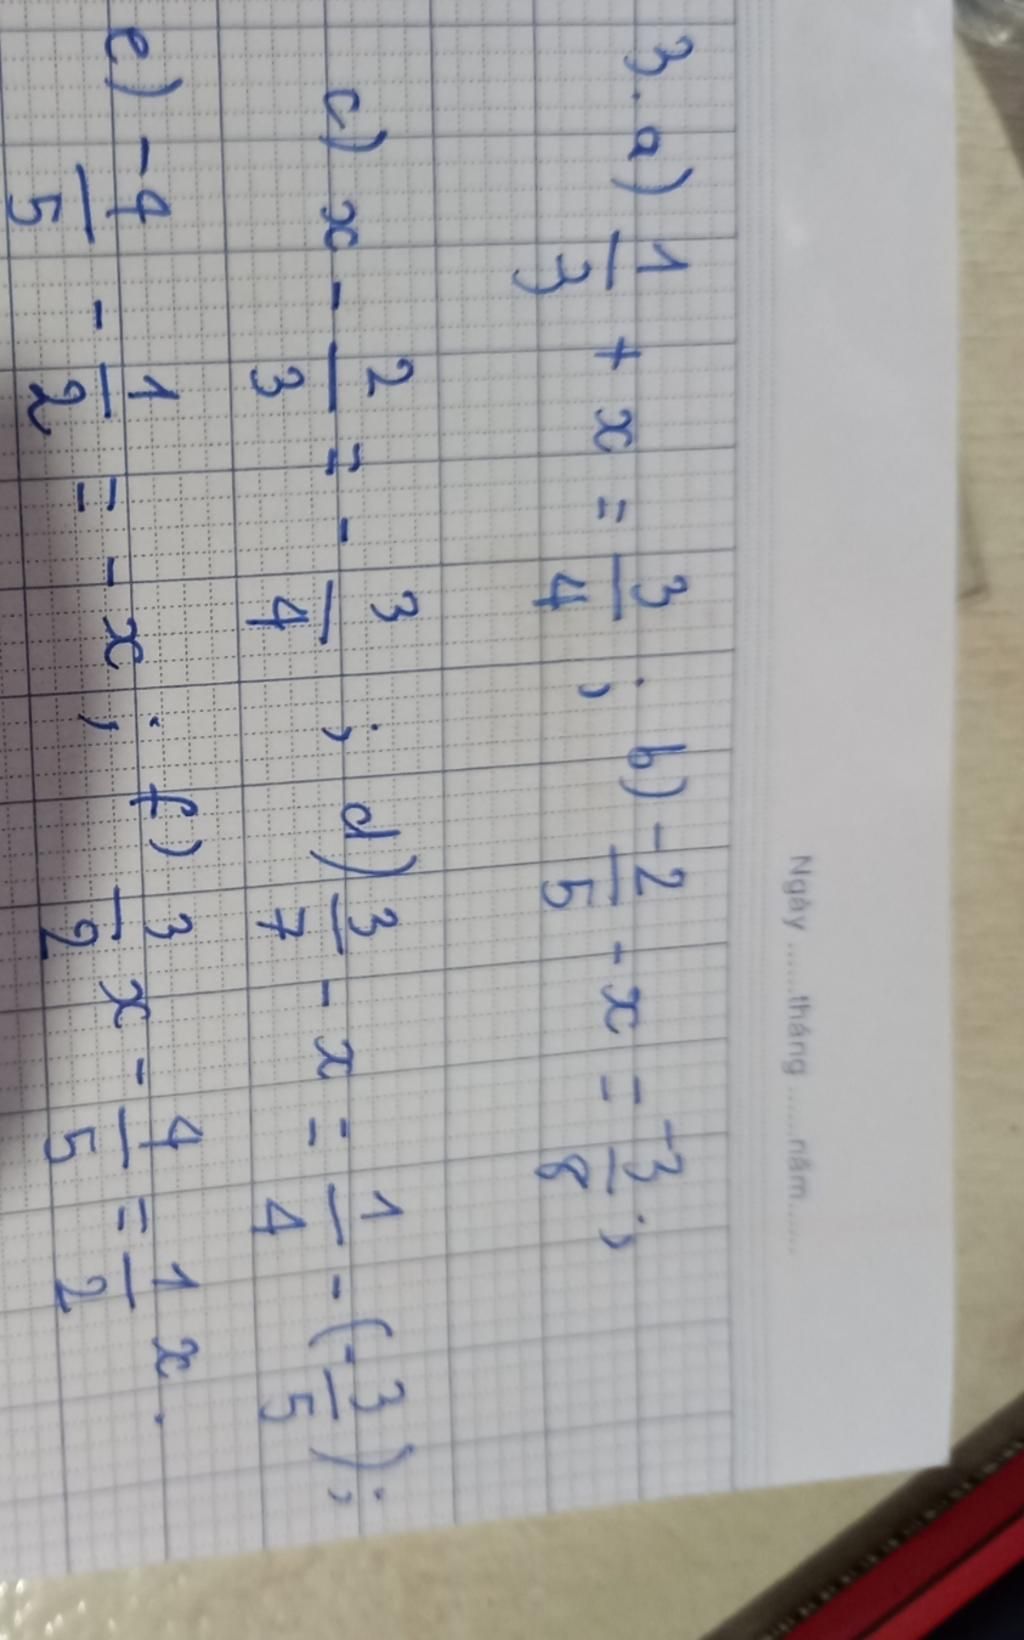 Ngày ...... tháng ...... năm ......
3. a) 1/3 + x = 3/4 ; b) -2/5 - x = -3/8 ;
c) x - 2/3 = - 3/4 ; d) 3/7 - x = 1/4 - (-3/5) ;
e) -4/5 - 1/2 = - x ; f) 3/2 x - 4/5 = 1/2 x .